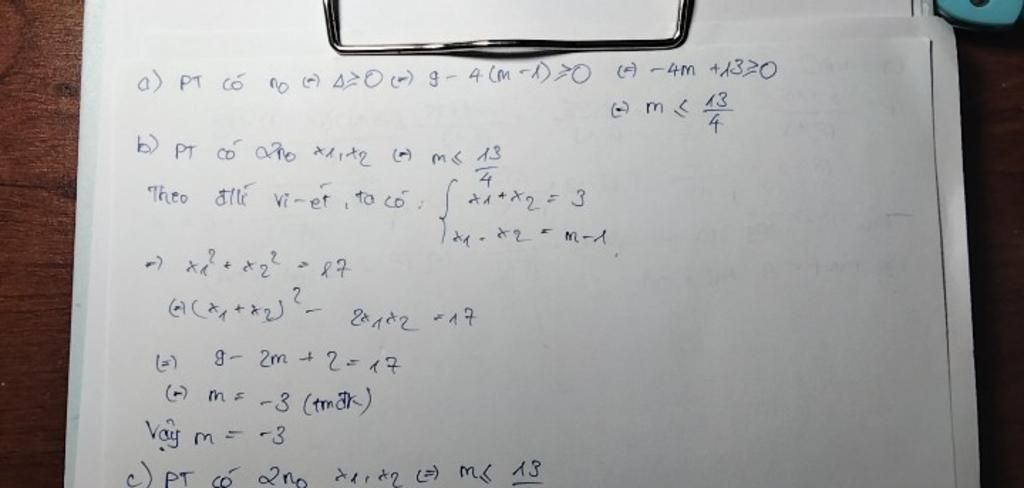 a) PT có no (=) Δ ≥ 0 (=) 9 - 4(m-1) ≥ 0 (=) -4m + 13 ≥ 0
(=) m ≤ 13/4
b) PT có 2no x1, x2 (=) m ≤ 13/4
Theo đlí vi-ét, ta có: { x1 + x2 = 3
x1 . x2 = m-1
=) x1² + x2² = 17
(=) (x1 + x2)² - 2x1x2 = 17
(=) 9 - 2m + 2 = 17
(=) m = -3 (tmđk)
Vậy m = -3
c) PT có 2no x1, x2 (=) m ≤ 13